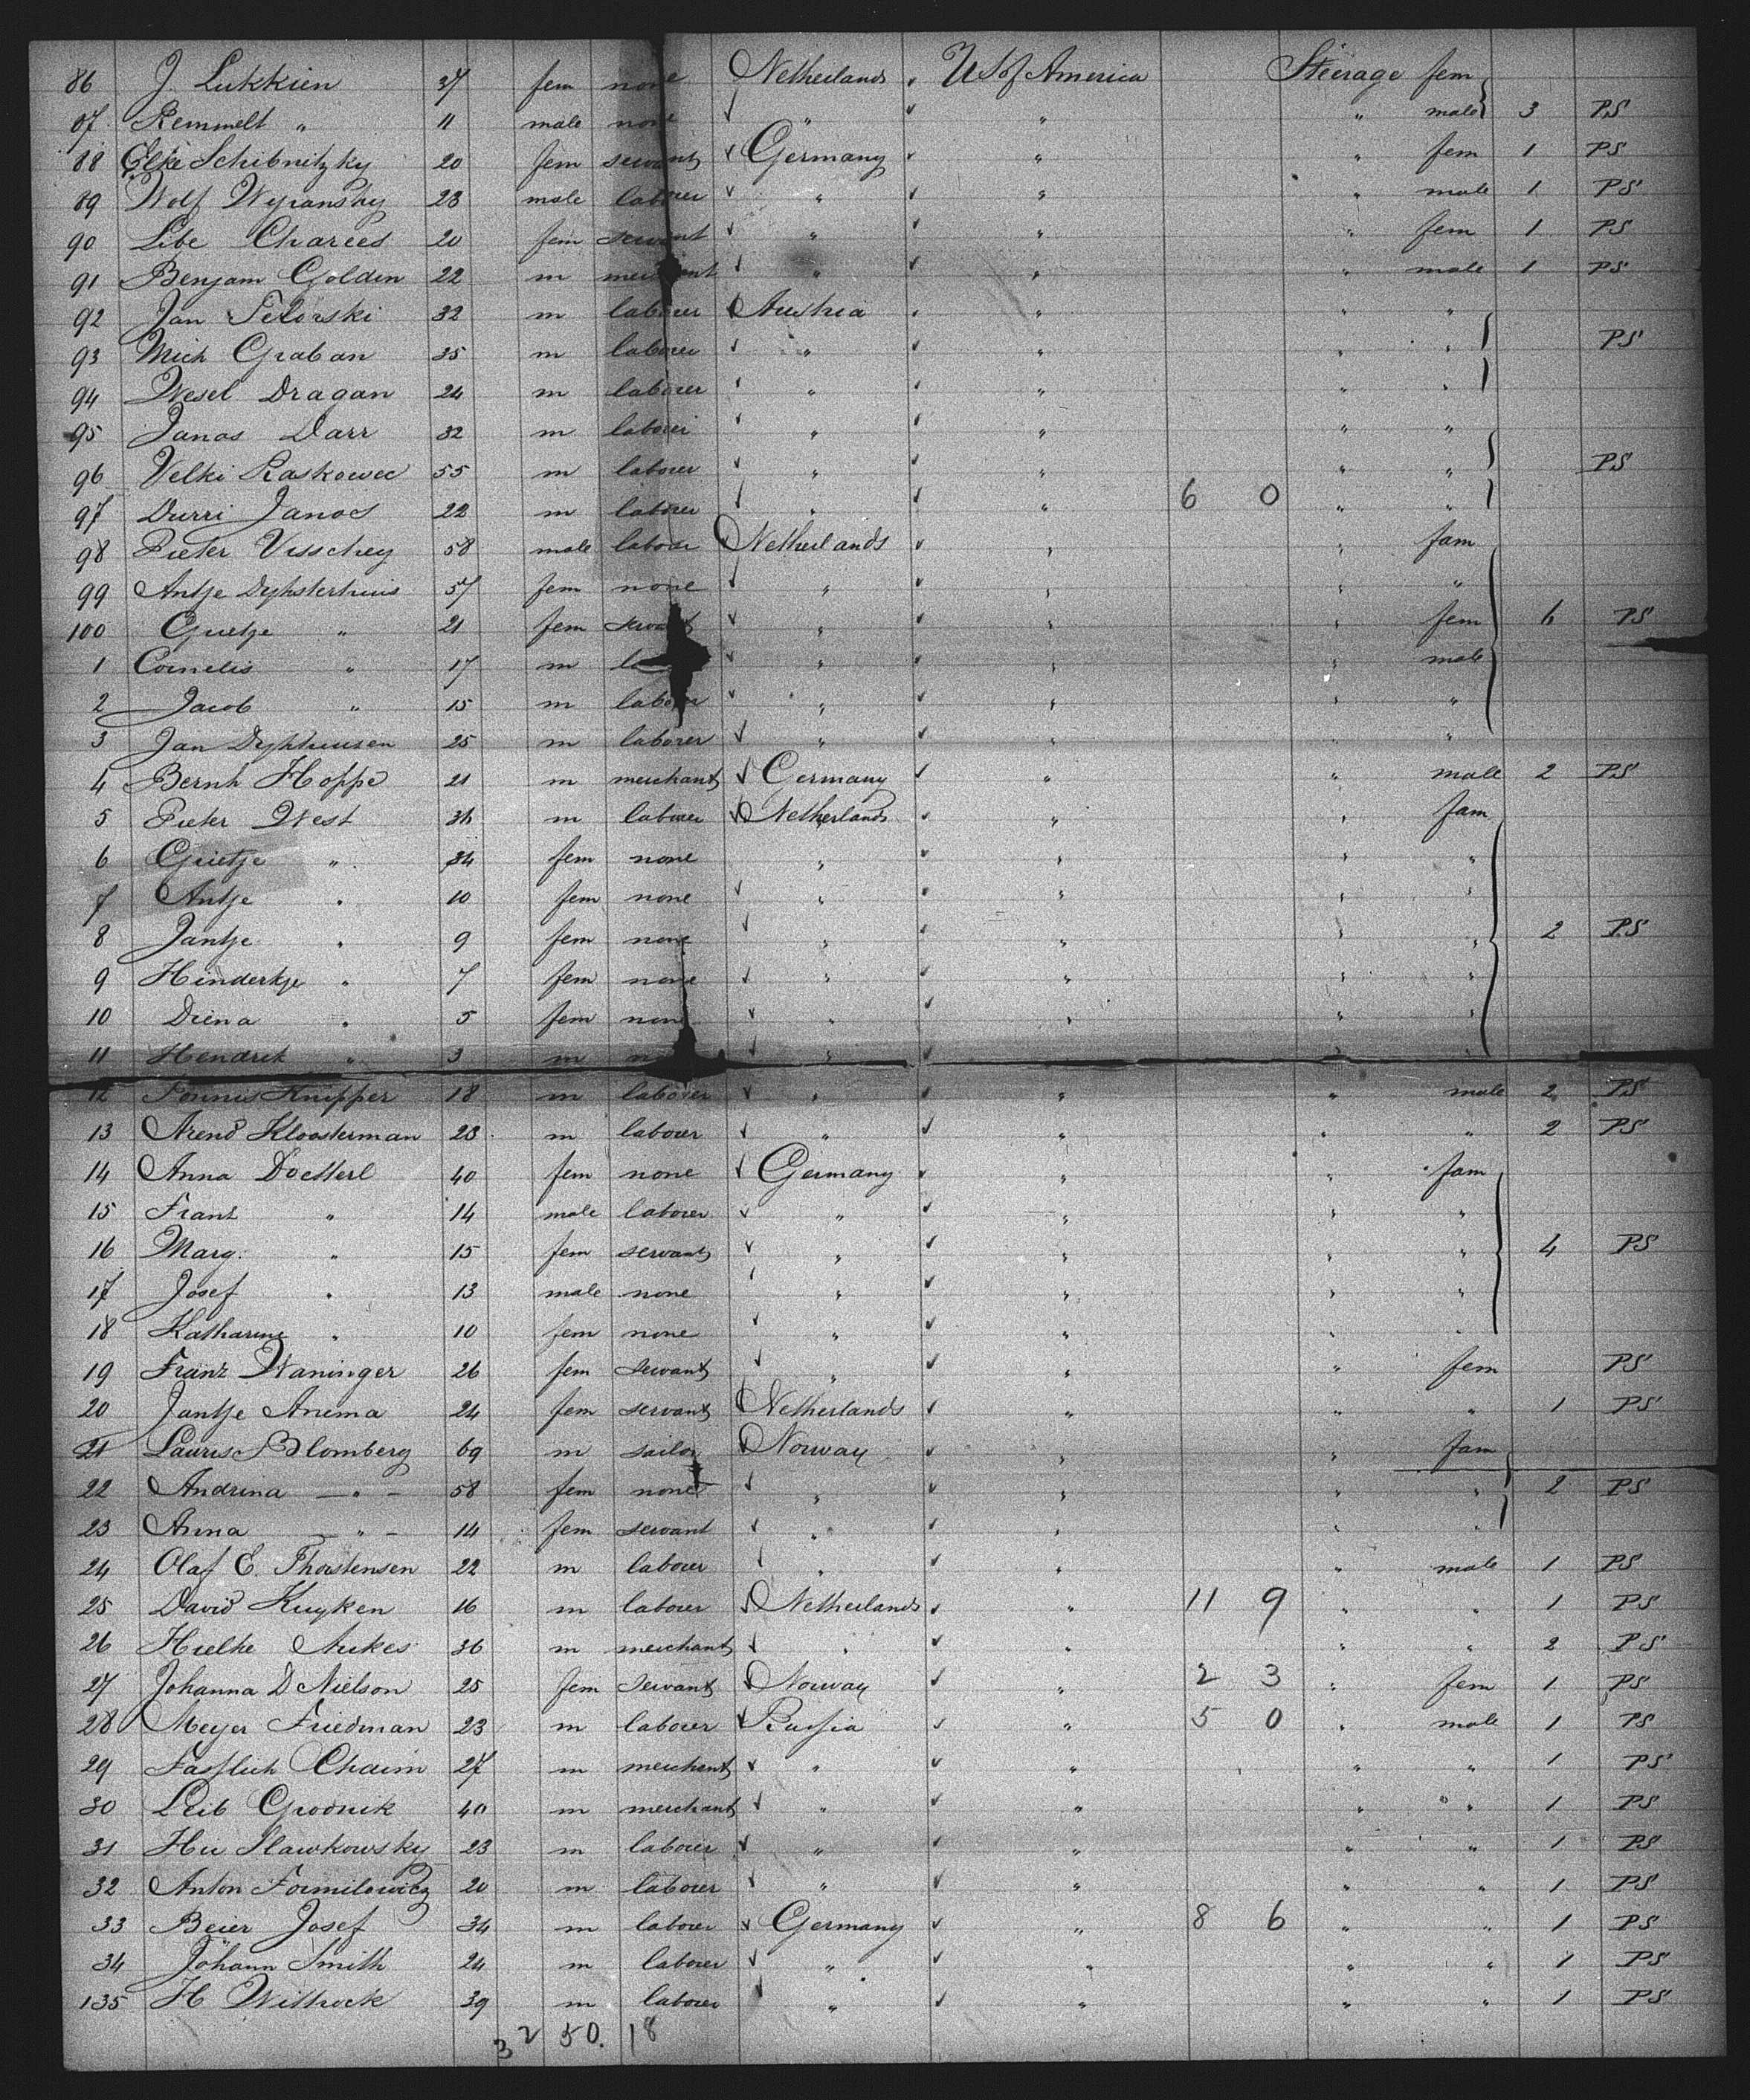 86 J. Lukkien 37 fem none Netherlands US of America Steerage fem
87 Remmelt " 11 male none " " " male 3 PS
88 Elke Schibnitzky 20 fem servant Germany " " fem 1 PS
89 Wolf Wyransky 23 male laborer " " " male 1 PS
90 Libe Charees 20 fem servant " " " fem 1 PS
91 Benjam Golden 22 m merchant " " " male 1 PS
92 Jan 32 m laborer Austria " " "
93 Mich Graban 35 m laborer " " " " PS
94 Wesel Dragan 24 m laborer " " " "
95 Janos Darr 32 m laborer " " " "
96 Velki Raskowec 55 m laborer " " " " PS
97 Durri Janos 22 m laborer " " 6 0 " "
98 Pieter Visschey 58 male laborer Netherlands " " fam
99 Antje Dyksterhuis 57 fem none " " " "
100 Grietje " 21 fem servant " " " fem 6 PS
1 Cornelis " 17 m " " " male
2 Jacob " 15 m laborer " " " "
3 Jan Dykhuisen 25 m laborer " " " "
4 Bernh Hoppe 21 m merchant Germany " " male 2 PS
5 Pieter West 36 m laborer Netherlands " " fam
6 Grietje " 34 fem none " " " "
7 Antje " 10 fem none " " " "
8 Jantje " 9 fem none " " " " 2 PS
9 Hinderkje " 7 fem none " " " "
10 Diena " 5 fem none " " " "
11 Hendrik " 3 m " " "
12 Tonnis Knipper 18 m laborer " " " male 2 PS
13 Arend Kloosterman 23 m laborer " " " " 2 PS
14 Anna Doetterl 40 fem none Germany " " fam
15 Franz " 14 male laborer " " " "
16 Marg. " 15 fem servant " " " " 4 PS
17 Josef " 13 male none " " " "
18 Katharine " 10 fem none " " " "
19 Franz Waninger 26 fem servant " " " fem PS
20 Jantje Anema 24 fem servant Netherlands " " " 1 PS
21 Lauris Blomberg 69 m sailor Norway " " fam
22 Andrina — " — 58 fem none " " " " 2 PS
23 Anna — " — 14 fem servant " " " "
24 Olaf E. Thorstensen 22 m laborer " " " male 1 PS
25 David Kuyken 16 m laborer Netherlands " 11 9 " " 1 PS
26 Hielke Aukes 36 m merchant " " " " 2 PS
27 Johanna D Nielson 25 fem servant Norway " 2 3 " fem 1 PS
28 Meyer Friedman 23 m laborer Russia " 5 0 " male 1 PS
29 Fasslich Chaim 27 m merchant " " " " 1 PS
30 Leib Grodnik 40 m merchant " " " " 1 PS
31 Slawkowsky 23 m laborer " " " " 1 PS
32 Anton Formilowicz 20 m laborer " " " " 1 PS
33 Beier Josef 34 m laborer Germany " 8 6 " " 1 PS
34 Johann Smith 24 m laborer " " " " 1 PS
135 H Wittrock 39 m laborer " " " " 1 PS
32 50. 18